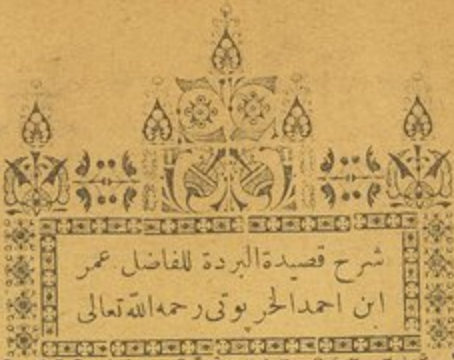 شرح قصيدة البردة للفاضل عمر
ابن احمد الخر پوتى رحمه الله تعالى